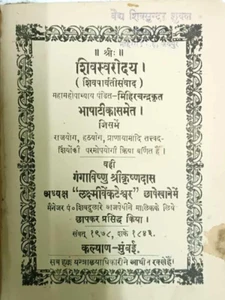 वैद्य शिवसुन्दर
॥ श्रीः ॥
शिवस्वरोदय।
( शिवपार्वतीसंवाद )
महामहोपाध्याय पंडित-मिहिरचन्द्रकृत
भाषाटीकासमेत।
जिसमें
राजयोग, हठयोग, प्राणायामादि तत्त्वद-
र्शियोंकी परमोपयोगी क्रिया वर्णित हैं।
वही
गंगाविष्णु श्रीकृष्णदास
अध्यक्ष "लक्ष्मीवेंकटेश्वर" छापेखानेमें
मैनेजर पं० शिवदुलारे वाजपेयीने मालिकके लिये
छापकर प्रसिद्ध किया।
संवत् १९७८, शके १८४३.
कल्याण-मुंबई.
सब हक्क यन्त्रालयाधिकारीने स्वाधीन रक्खेहैं।